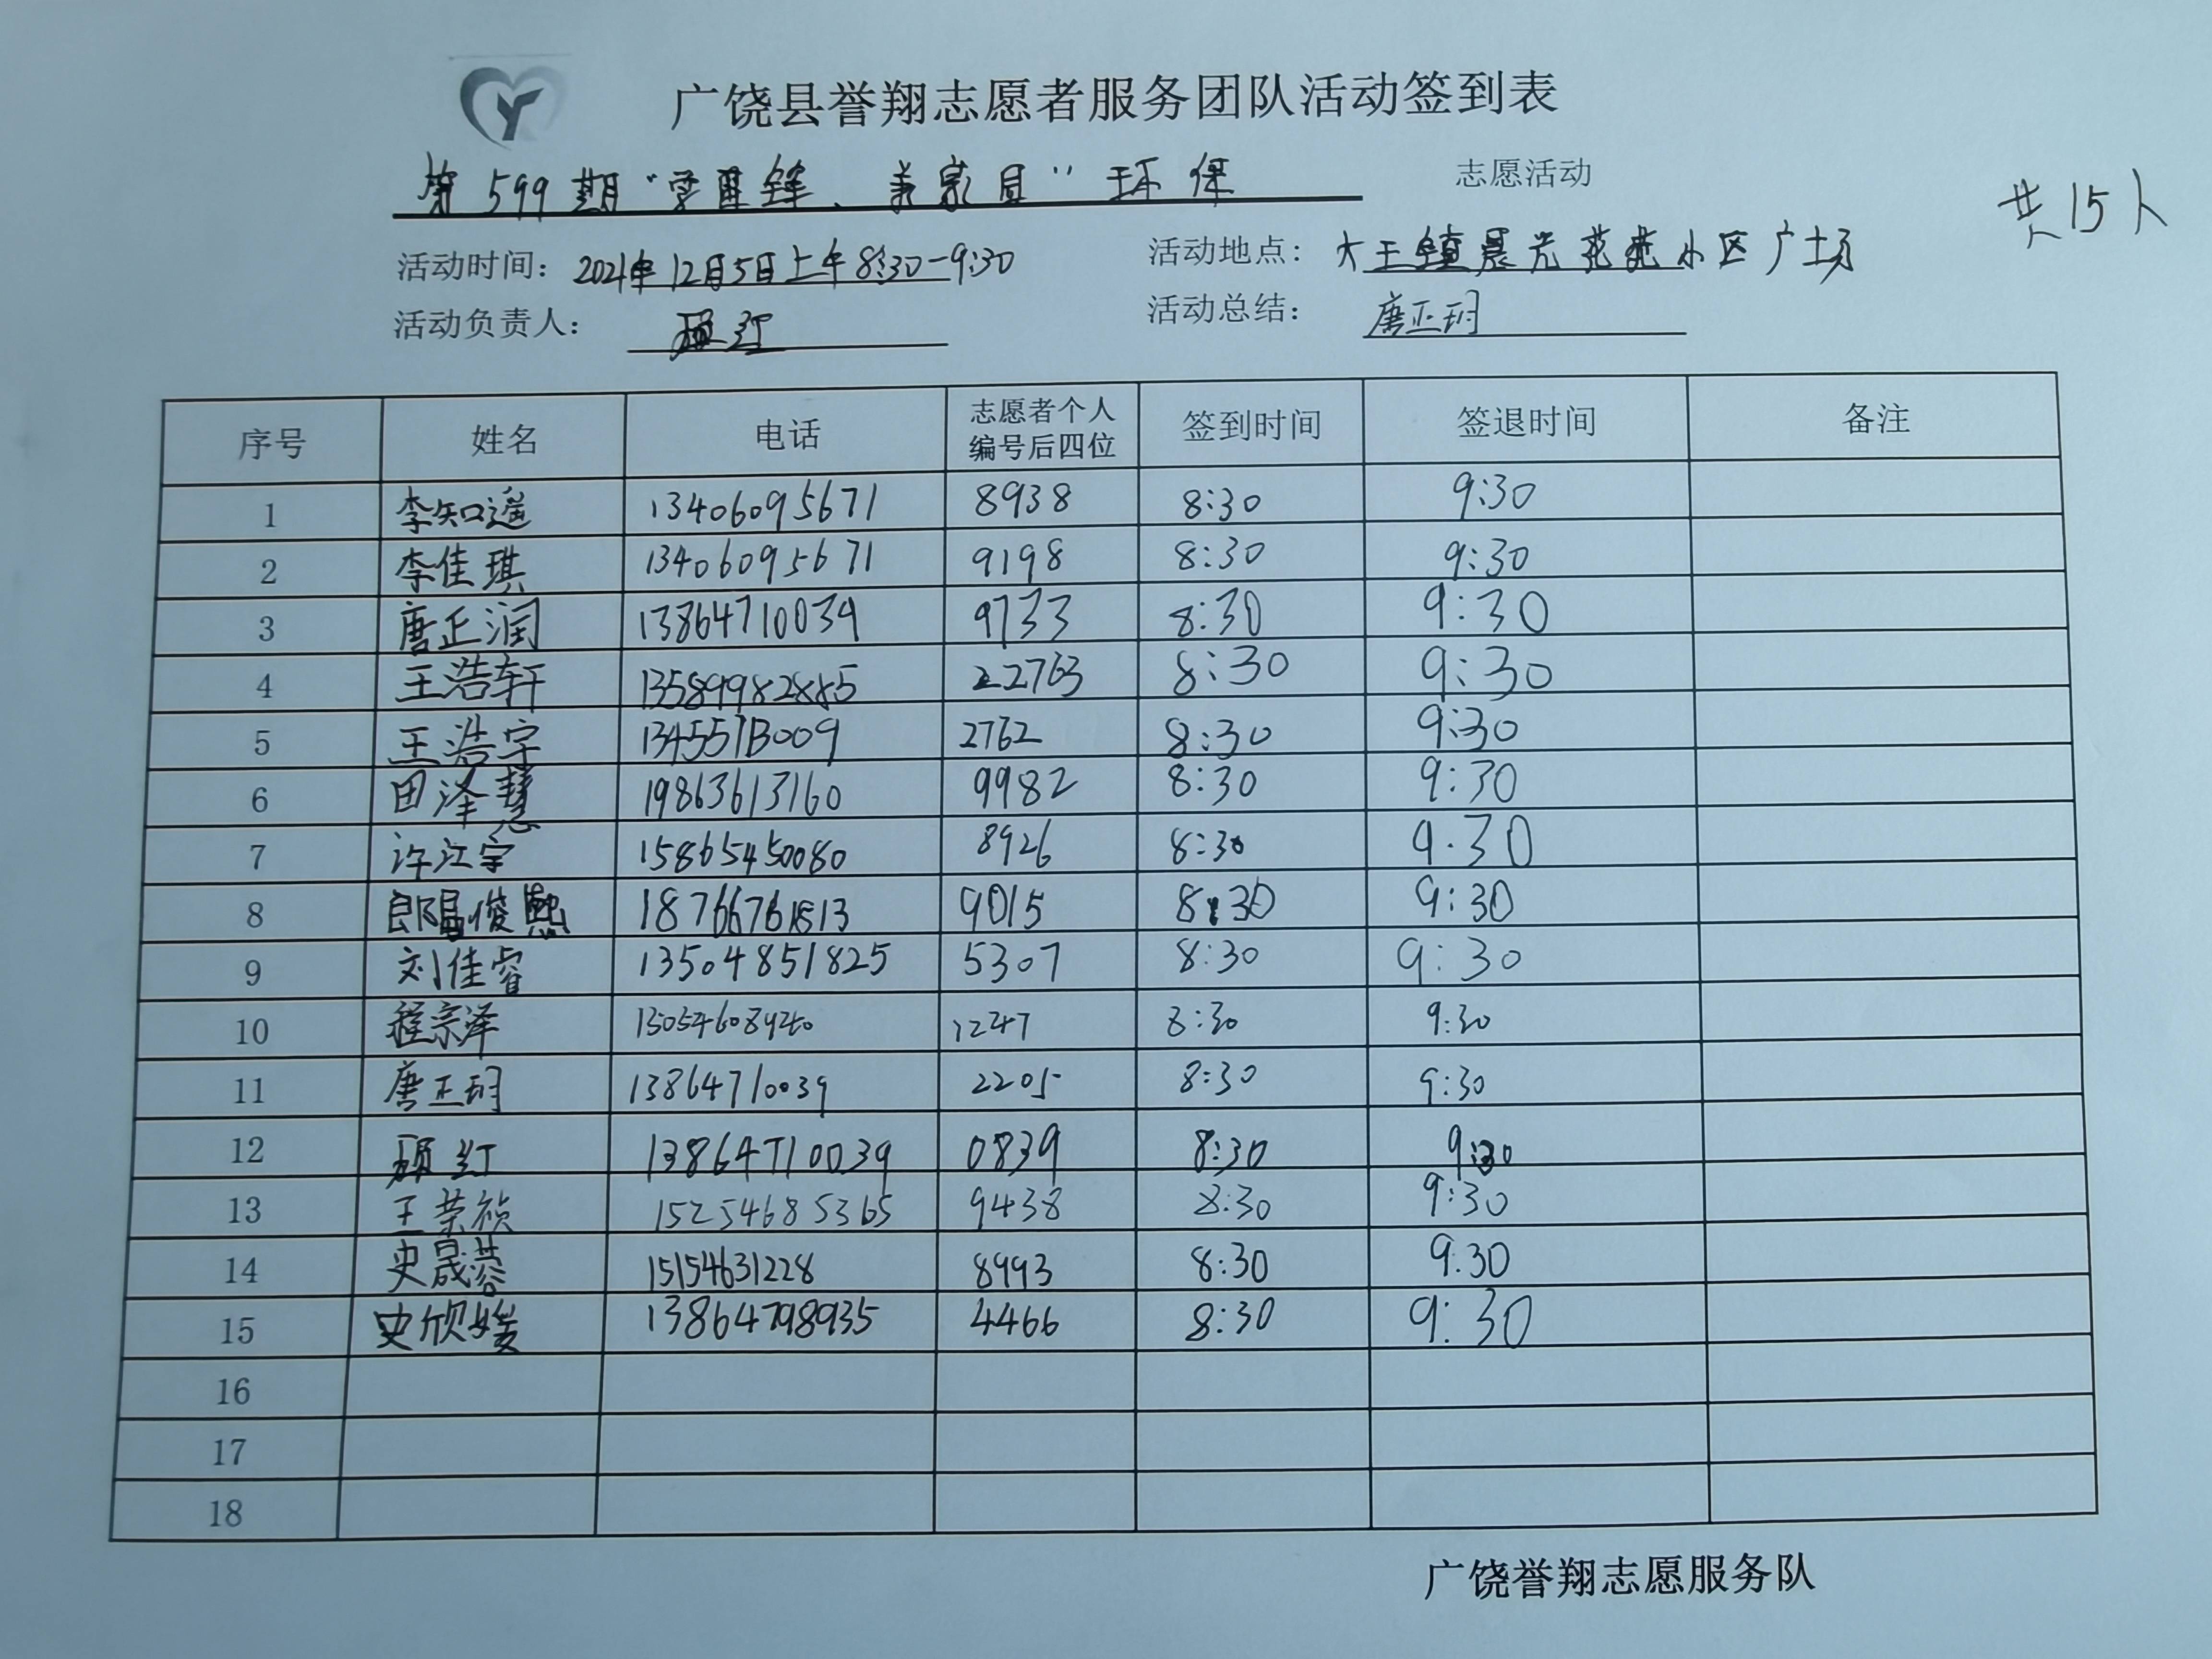 广饶县誉翔志愿者服务团队活动签到表
第599期“学雷锋、美家园”环保 志愿活动
共15人
活动时间：2021年12月5日上午8:30-9:30 活动地点：大王镇晨光花苑小区广场
活动负责人： 红 活动总结：唐正玥
序号 姓名 电话 志愿者个人编号后四位 签到时间 签退时间 备注
1 李知遥 13406095671 8938 8:30 9:30
2 李佳琪 13406095671 9198 8:30 9:30
3 唐正润 13864710039 9733 8:30 9:30
4 王浩轩 13589982885 22763 8:30 9:30
5 王浩宇 13455713009 2762 8:30 9:30
6 田泽慧 19863613160 9982 8:30 9:30
7 许江宇 15865450080 8926 8:30 9.30
8 俊熙 18766761513 9015 8:30 9:30
9 刘佳睿 13504851825 5307 8:30 9:30
10 程宗泽 13054608940 1247 8:30 9:30
11 唐正玥 13864710039 2205 8:30 9:30
12 红 13864710039 0839 8:30 9:30
13 王荣祯 15254685365 9438 8:30 9:30
14 史晟蓉 15154631228 8993 8:30 9:30
15 史欣媛 13864798935 4466 8:30 9:30
16
17
18
广饶誉翔志愿服务队